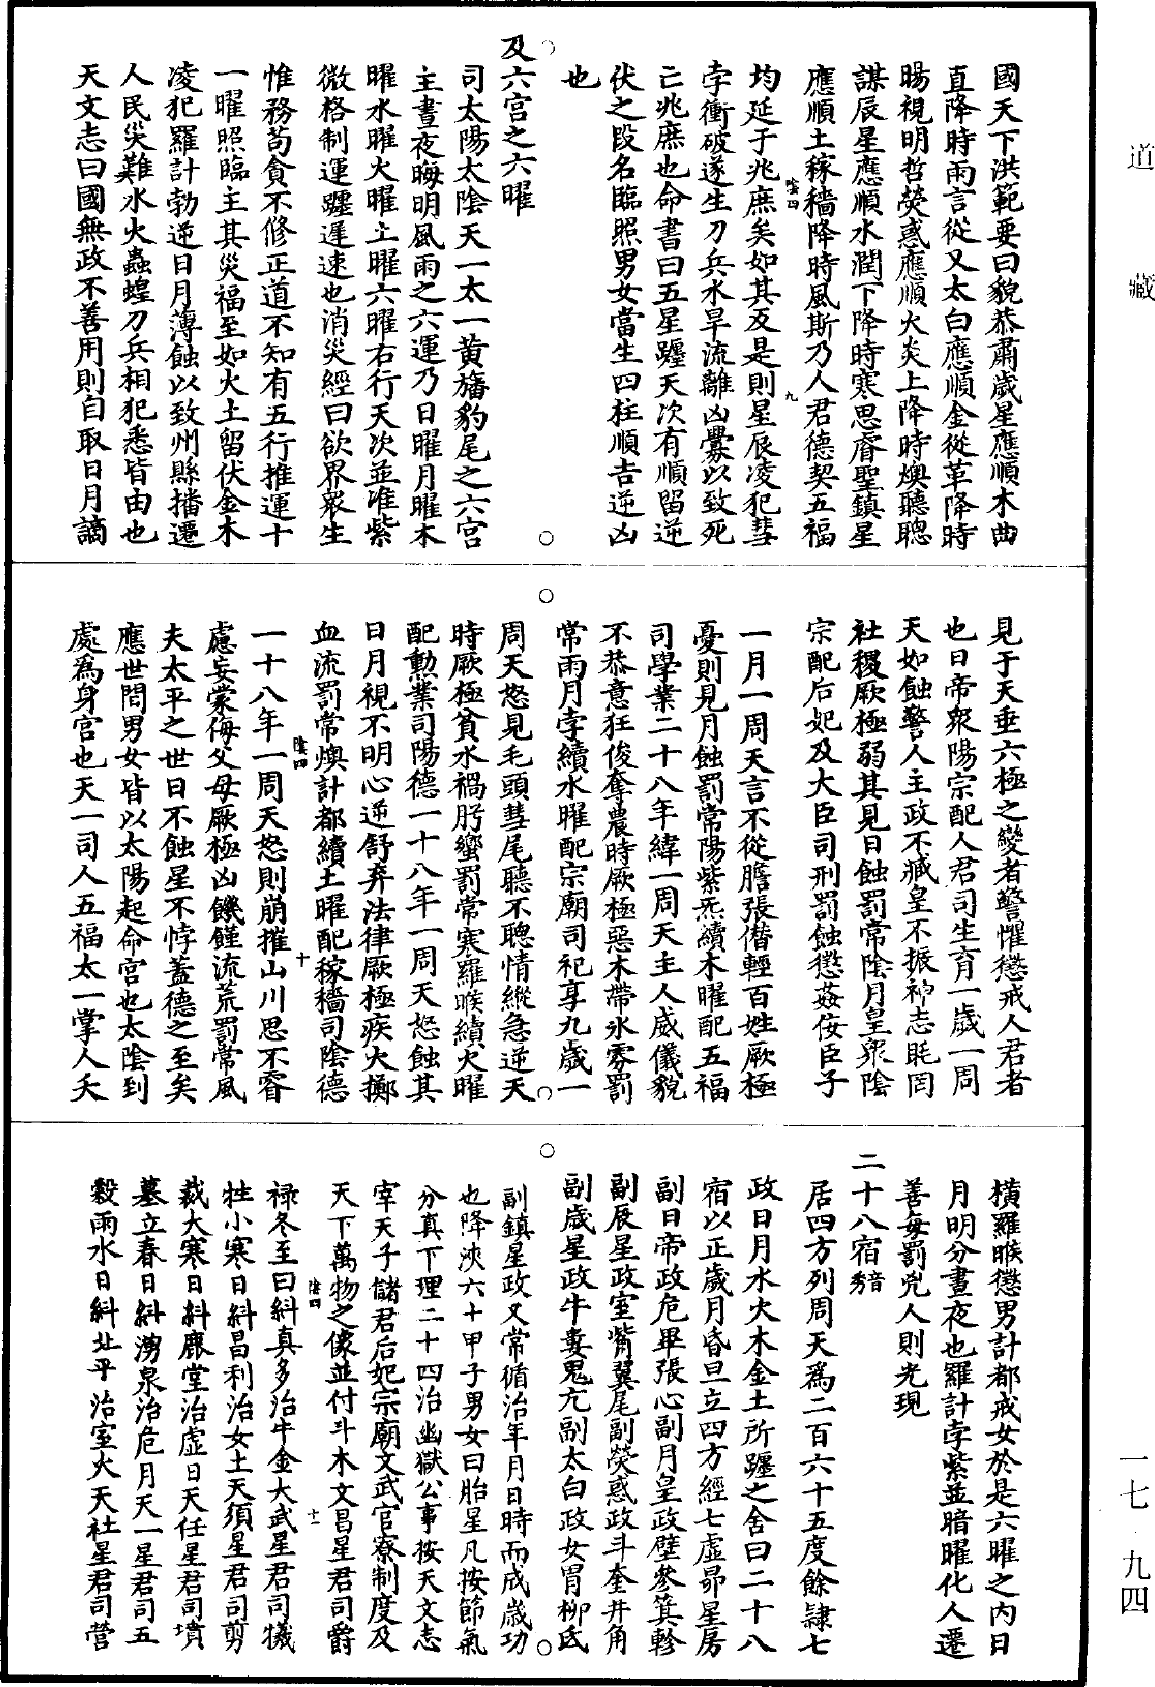 國天下洪範要曰貌恭肅歲星應順木曲
直降時雨言從又太白應順金從革降時
暘視明哲熒惑應順火炎上降時燠聽聰
謀辰星應順水潤下降時寒思睿聖鎮星
應順土稼穡降時風斯乃人君德契五福
均延于兆庶矣如其反是則星辰凌犯彗
孛衝破遂生刀兵水旱流離凶釁以致死
亡兆庶也命書曰五星躔天次有順留逆
伏之段名臨照男女當生四柱順吉逆凶
也
及六宮之六曜
司太陽太陰天一太一黃旛豹尾之六宮
主晝夜晦明風雨之六運乃日曜月曜木
曜水曜火曜土曜六曜右行天次並准紫
微格制運躔遲速也消災經曰欲界眾生
惟務苟貪不修正道不知有五行推運十
一曜照臨主其災福至如火土留伏金木
凌犯羅計勃逆日月薄蝕以致州縣播遷
人民災難水火蟲蝗刀兵相犯悉皆由也
天文志曰國無政不善用則自取日月謫
見于天垂六極之變者警懼懲戒人君者
也日帝眾陽宗配人君司生育一歲一周
天如蝕警人主政不臧皇不振神志眊罔
社稷厥極弱其見日蝕罰常陰月皇眾陰
宗配后妃及大臣司刑罰蝕懲姦佞臣子
一月一周天言不從膽張僭輕百姓厥極
憂則見月蝕罰常陽紫炁續木曜配五福
司學業二十八年緯一周天主人威儀貌
不恭意狂俊奪農時厥極惡木帶氷雰罰
常雨月孛續水曜配宗廟司祀享九歲一
周天怒見毛頭彗尾聽不聰情縱急逆天
時厥極貧水禍肹蠁罰常寒羅睺續火曜
配勳業司陽德一十八年一周天怒蝕其
日月視不明心逆舒弃法律厥極疾火擲
血流罰常燠計都續土曜配稼穡司陰德
一十八年一周天怒則崩摧山川思不睿
慮妄蒙侮父母厥極凶饑饉流荒罰常風
夫太平之世日不蝕星不悖蓋德之至矣
應世間男女皆以太陽起命宮也太陰到
處為身宮也天一司人五福太一掌人夭
橫羅睺懲男計都戒女於是六曜之內日
月明分晝夜也羅計孛紫並暗曜化人遷
善每罰兇人則光現
二十八宿音秀
居四方列周天為二百六十五度餘隸七
政日月水火木金土所躔之舍曰二十八
宿以正歲月昏旦立四方經七虛昴星房
副日帝政危畢張心副月皇政壁參箕軫
副辰星政室觜翼尾副熒惑政斗奎井角
副歲星政牛婁鬼亢副太白政女胃柳氐
副鎮星政又常循治年月日時而成歲功
也降泱六十甲子男女曰胎星凡按節氣
分真下理二十四治幽獄公事按天文志
宰天子儲君后妃宗廟文武官寮制度及
天下萬物之像並付斗木文昌星君司爵
祿冬至日糾真多治牛金大武星君司犧
牲小寒日糾昌利治女土天須星君司剪
裁大寒日糾鹿堂治虛日天任星君司墳
墓立春日糾湧泉治危月天一星君司五
穀雨水日糾北平治室火天社星君司營
陰四
九
陰四
十
陰四
十一
道藏
一七·九四